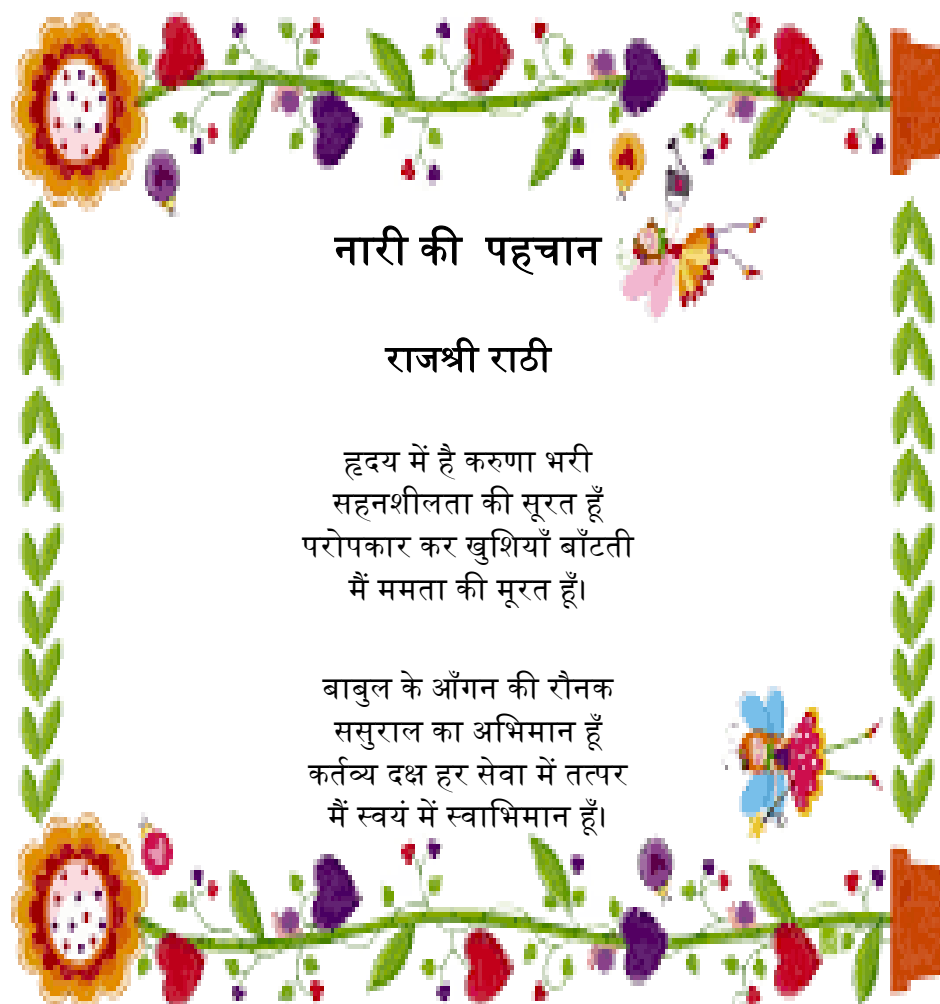 नारी की पहचान
राजश्री राठी
हृदय में है करुणा भरी
सहनशीलता की सूरत हूँ
परोपकार कर खुशियाँ बाँटती
मैं ममता की मूरत हूँ।
बाबुल के आँगन की रौनक
ससुराल का अभिमान हूँ
कर्तव्य दक्ष हर सेवा में तत्पर
मैं स्वयं में स्वाभिमान हूँ।